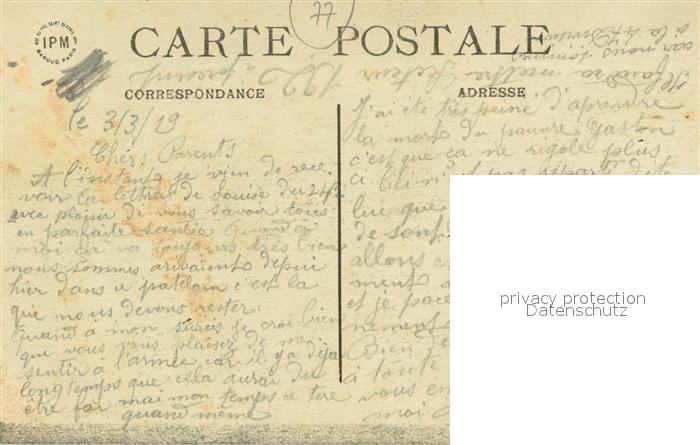 77
IPM
CARTE POSTALE
car nous sommes
à la 4e Division
Il faudra mettre secteur 192 à présent
CORRESPONDANCE
ADRESSE
le 3/3/19
Chers Parents
A l'instant je vien de rece-
voir la lettre de Louise du 24
avec plaisir di vous savoir tous
en parfaite santée Quand a
moi ca va toujours très bien
nous sommes arivaient depui
hier dans ce patelain c'est la
que nous devons rester.
Quand a mon sursis je croi bien
que vous vous plaisez de me
sentir a l'armée car il y a déja
longtemps que cela aurai du
etre fai mai mon temps ce tire
quand même
J'ai été très peiné d'aprendre
la mort du pauvre gaston
c'est que ça ne rigole plus
ci lili n'est pas réparti dite
lui que
de son
allons
ment
et je pace
nement
Bien
à toute
vous en
moi
privacy protection
Datenschutz